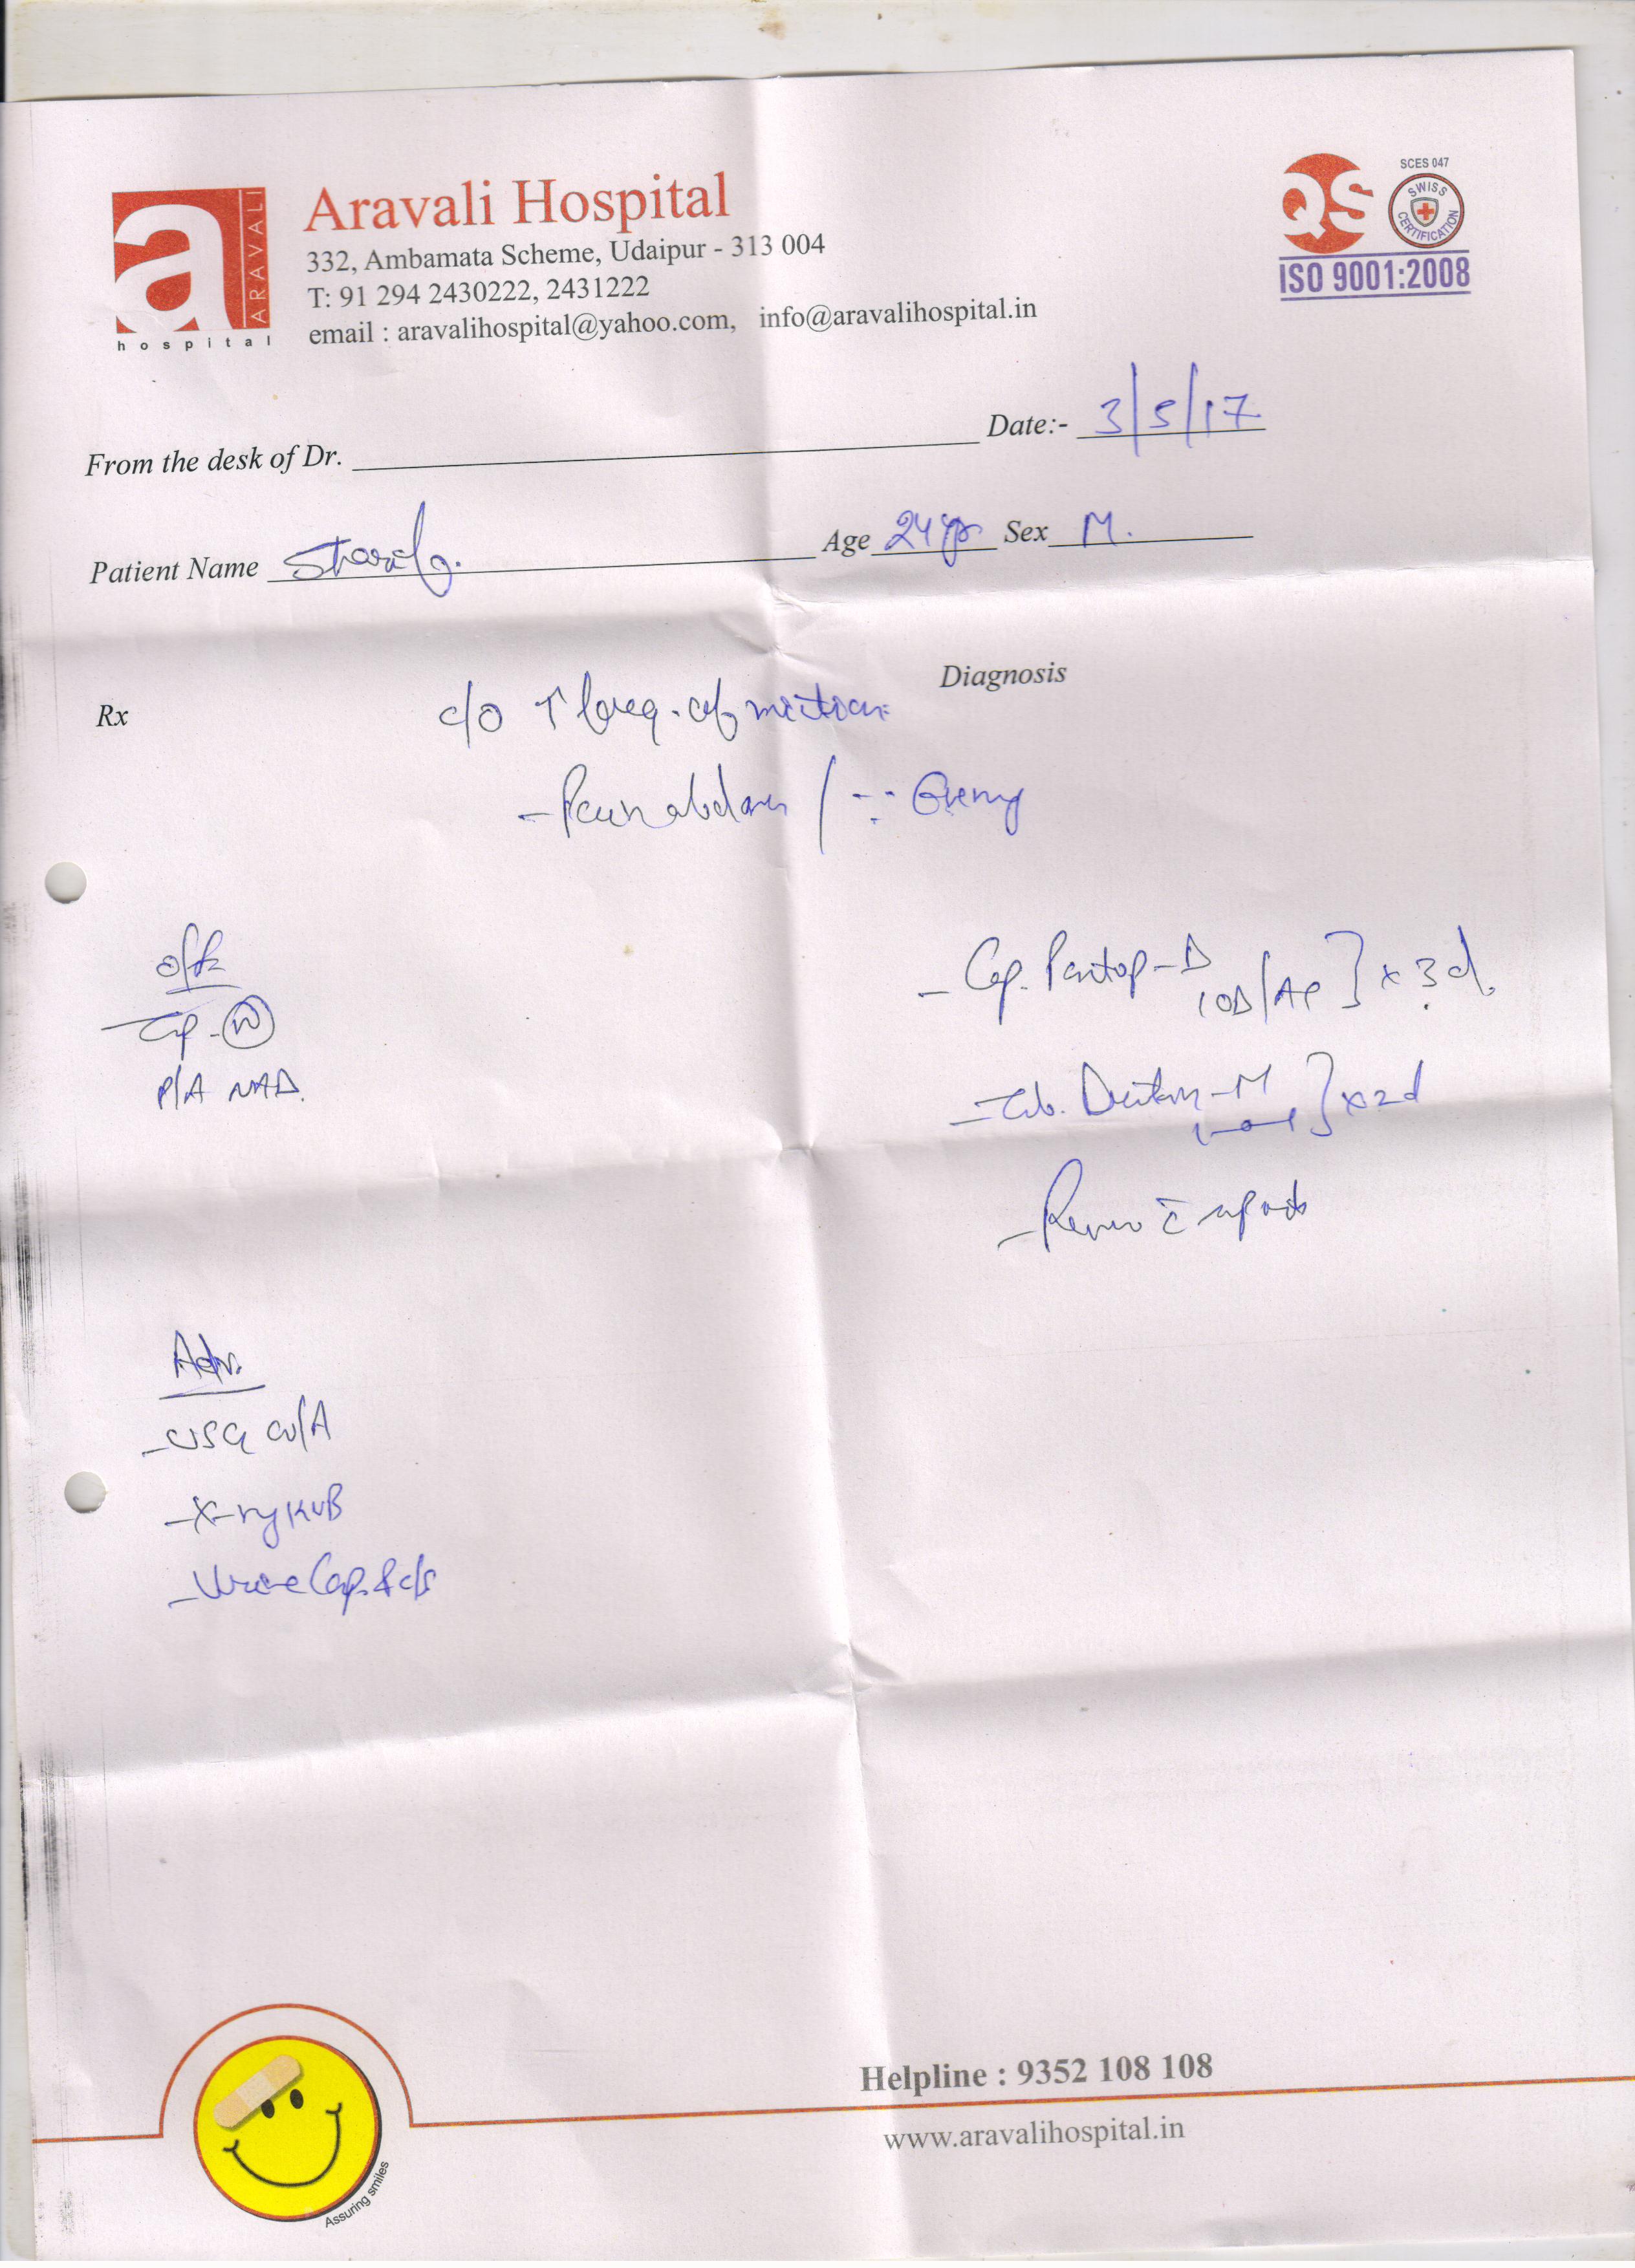 a ARAVALI
hospital
Aravali Hospital
332, Ambamata Scheme, Udaipur - 313 004
T: 91 294 2430222, 2431222
email : aravalihospital@yahoo.com, info@aravalihospital.in
QS
SCES 047
SWISS CERTIFICATION
ISO 9001:2008
Date:- 3/5/17
From the desk of Dr.
Patient Name Age 24 yrs Sex M.
Diagnosis
Rx
c/o ↑ freq. of
- Pain abdomen /
o/E
P/A NAD.
- Cap. Pantop-D
1 OD/AC } x 3 d.
- Tab. -M
} x 2 d
- Review c̄ reports
Adv.
- USG W/A
- X-ray KUB
- Urine & c/s
Helpline : 9352 108 108
www.aravalihospital.in
Assuring smiles